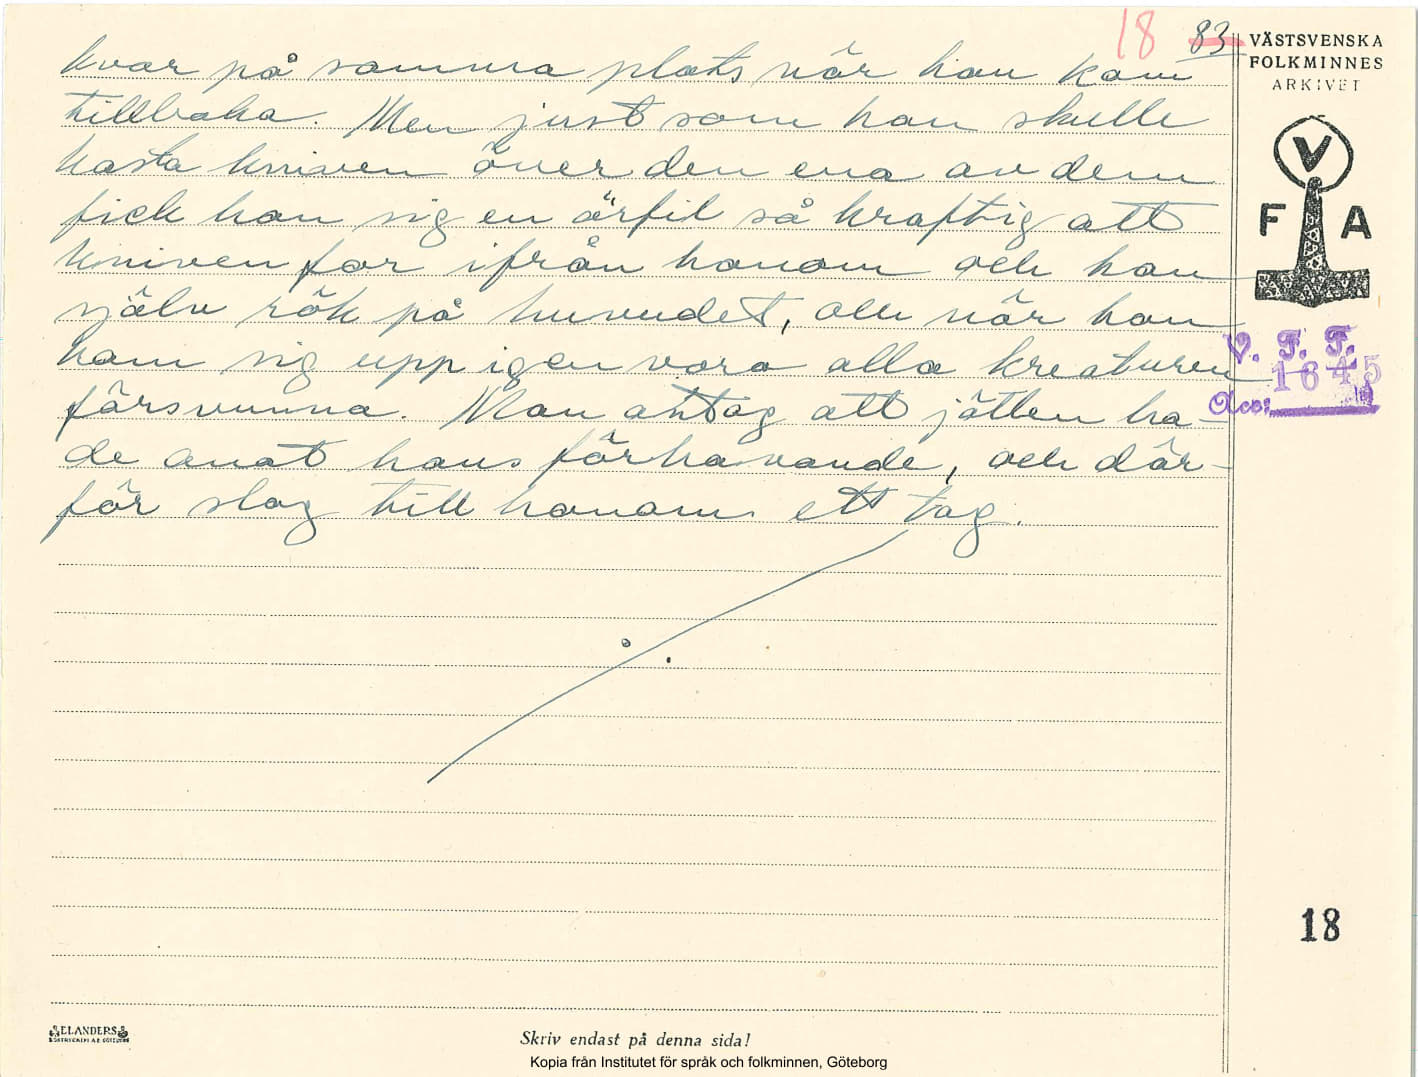 18 83
VÄSTSVENSKA
FOLKMINNES
ARKIVET
V
F A
V. F. F.
1645
Acc:
kvar på samma plats när han kom
tillbaka. Men just som han skulle
kasta kniven över den ena av dem
fick han sig en örfil så kraftig att
kniven for ifrån honom och han
själv rök på huvudet, och när han
kom sig upp igen voro alla kreaturen
försvunna. Man antog att jätten ha-
de anat hans förehavande, och där-
för slog till honom ett tag.
18
ELANDERS
Skriv endast på denna sida!
Kopia från Institutet för språk och folkminnen, Göteborg